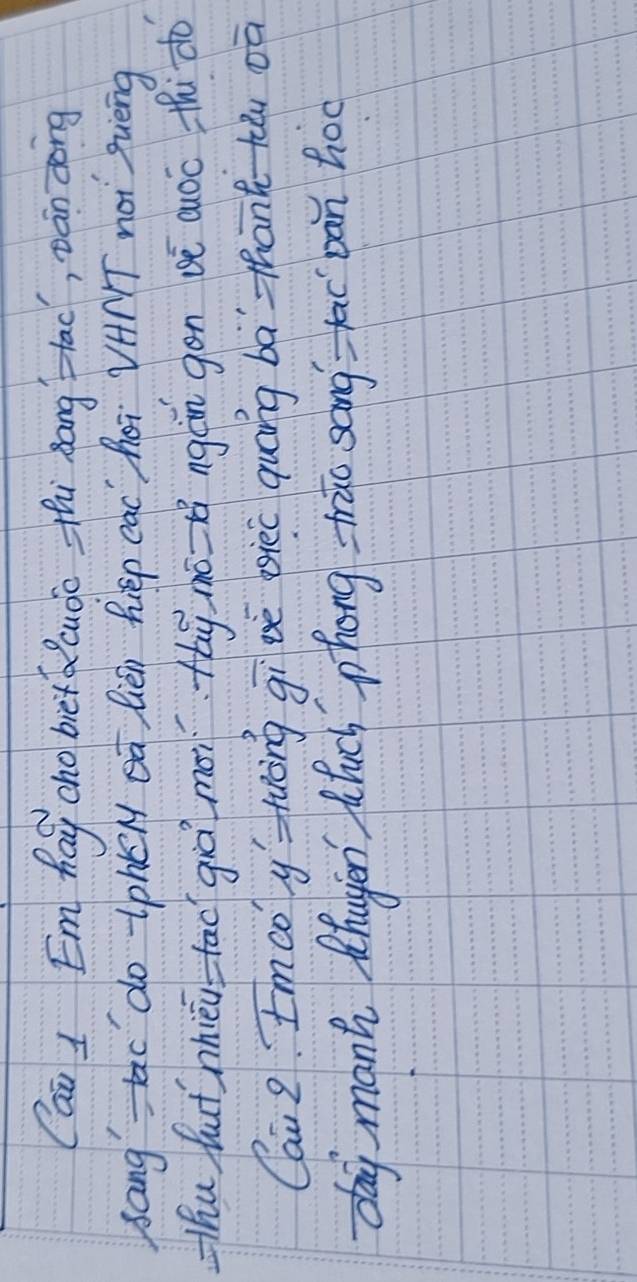 Câu 1 Em hãy cho biết 2 cuộc thi sáng tác, vận động
sáng tác do tphCM và liên hiệp các hội VHNT nói riêng
thu hút nhiều tác giả mới. Hãy mô tả ngắn gọn về cuộc thi đó
Câu 2. Em có ý tưởng gì về việc quảng bá thành tựu và
đẩy mạnh khuyến khích phong trào sáng tác văn học